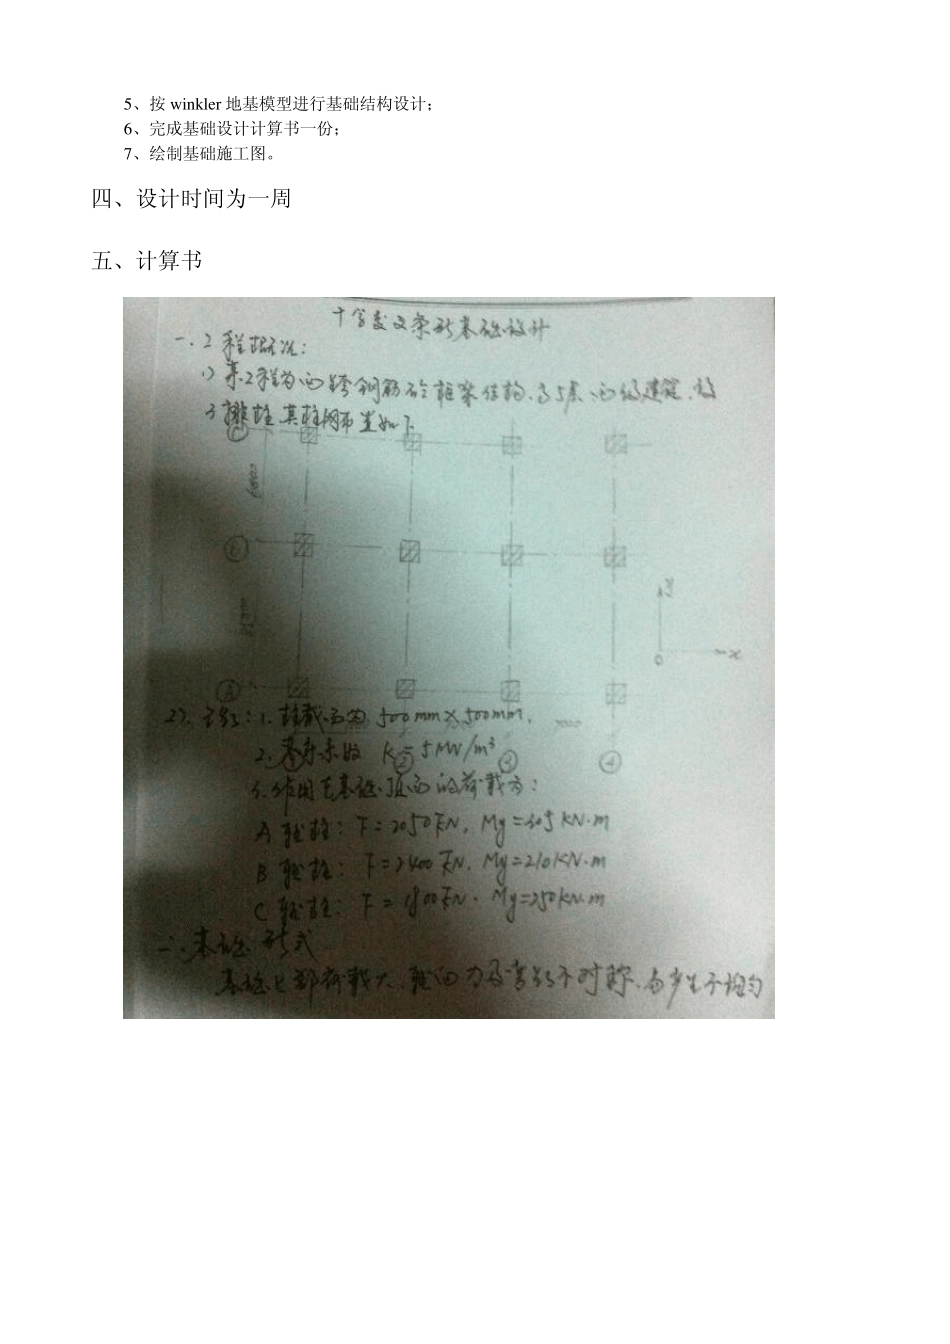 5、按 winkler 地基模型进行基础结构设计；
6、完成基础设计计算书一份；
7、绘制基础施工图。
四、设计时间为一周
五、计算书
十字交叉条形基础设计
一、工程概况：
1) 某工程为两跨钢筋砼框架结构、高5层、丙级建筑、设
3排柱 其柱网布置如下
C
B
A
y
o x
2). 1. 柱截面为 500mm×500mm.
2. 基床系数 K=5MN/m³
① ② ③ ④
3. 作用在基础顶面的荷载为：
A 轴柱：F=2050KN, My=205KN·m
B 轴柱：F=2400KN, My=210KN·m
C 轴柱：F=1800KN. My=250KN·m
二、基础形式
基础上部荷载大、轴向力及弯矩不对称、易产生不均匀